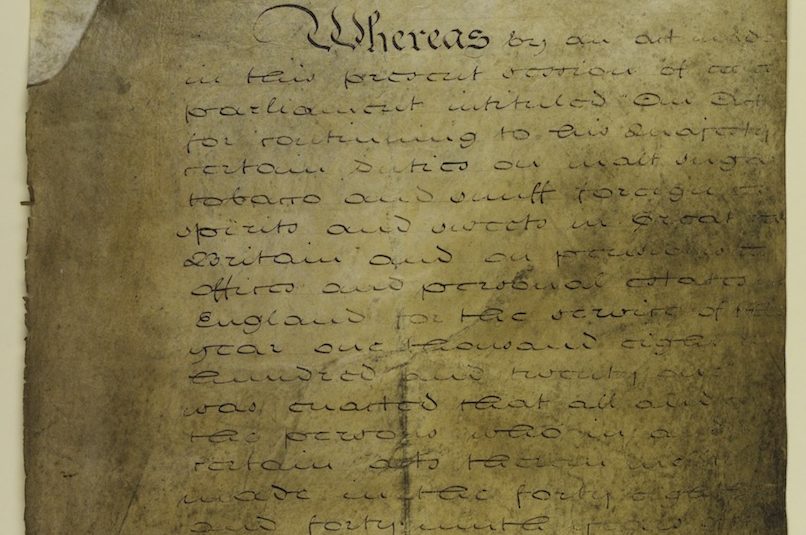 Whereas by an act made
in this present session of
parliament intituled An Act
for continuing to his Majesty
certain duties on malt sugar
tobacco and snuff foreign
spirits and sweets in Great
Britain and on pensions
offices and personal estates
England for the service of the
year one thousand eight
hundred and twenty one
was enacted that all and
the persons who in a
certain acts therein
made in the forty eighth
and forty ninth years